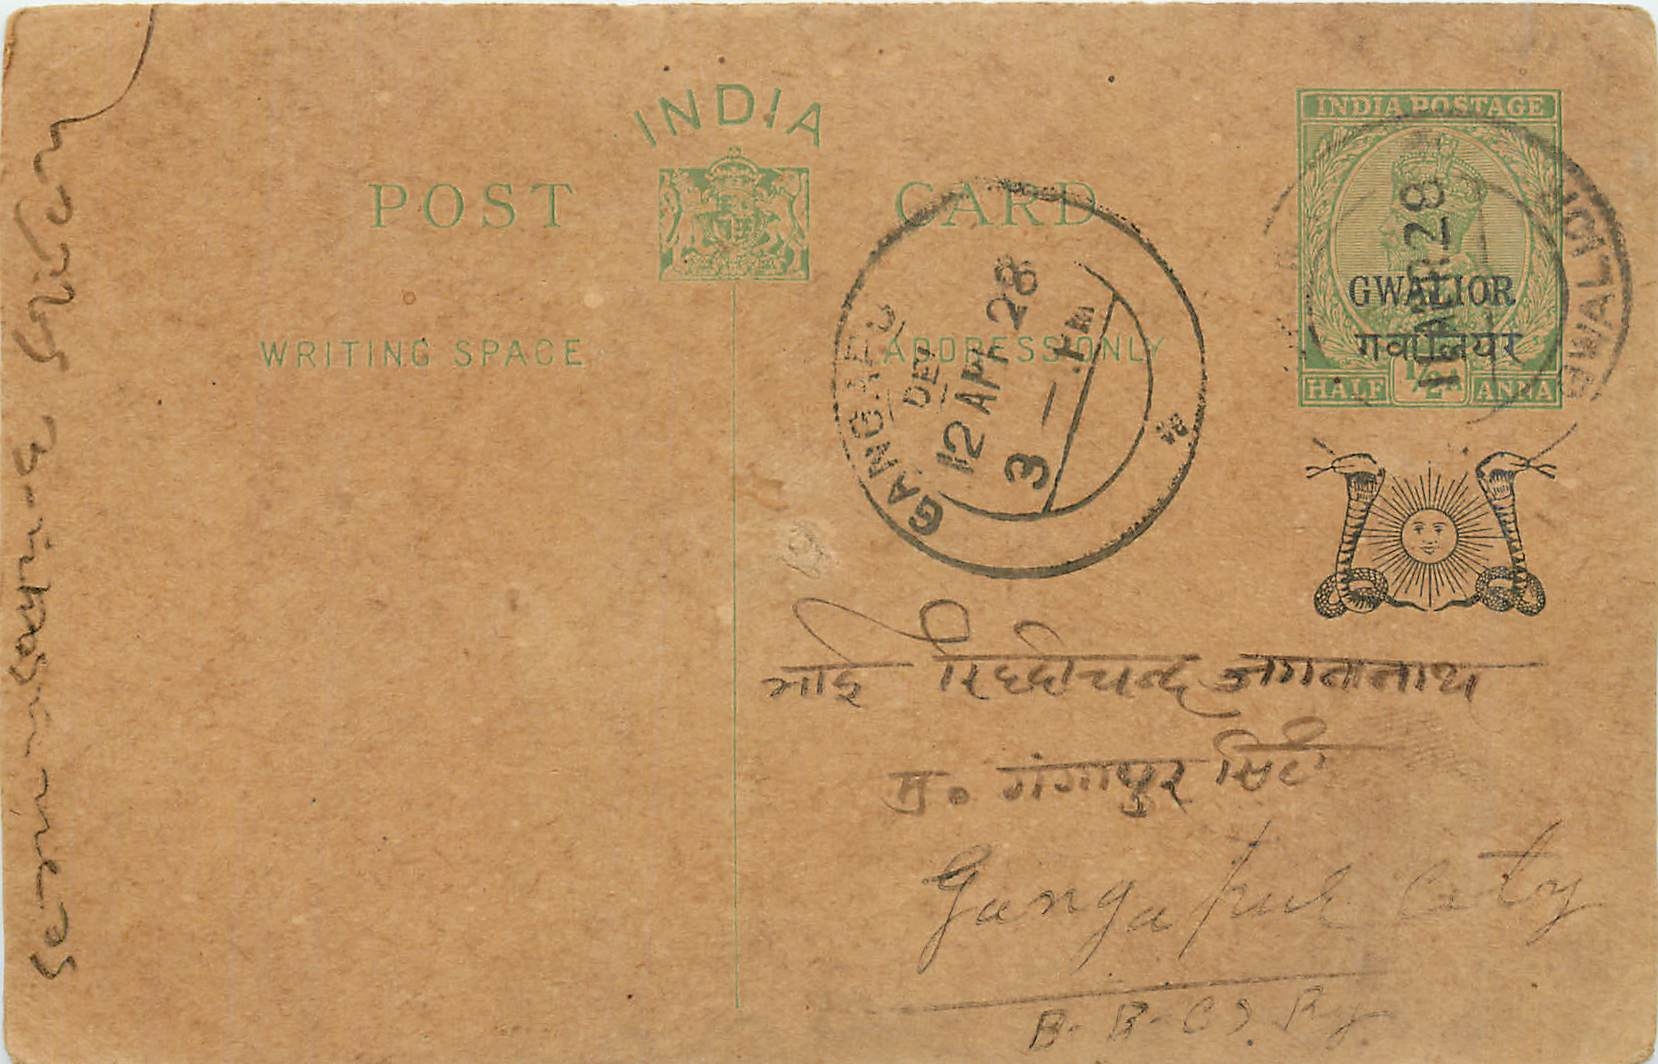 INDIA
POST CARD
WRITING SPACE
ADDRESS ONLY
INDIA POSTAGE
GWALIOR
गवालियर
HALF ½ ANNA
GWALIOR
APR. 28
GANGAPU
DEL
12 APR 28
3 - PM
भाई रिददीचन्द्र जगतानाथ
मु० गंगापुर सिटी
Gangapur City
B. B. C I Ry